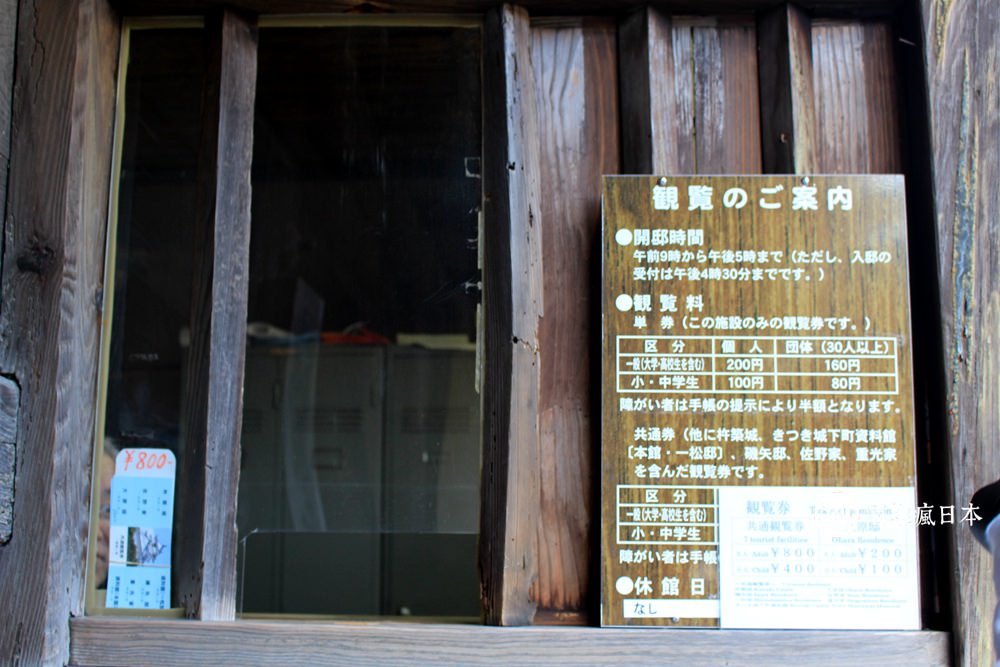 観覧のご案内
●開邸時間
午前9時から午後5時まで（ただし、入邸の
受付は午後4時30分までです。）
●観覧料
単券（この施設のみの観覧券です。）
区分 個人 団体（30人以上）
一般（大学・高校生を含む） 200円 160円
小・中学生 100円 80円
障がい者は手帳の提示により半額となります。
共通券（他に杵築城、きつき城下町資料館
〔本館・一松邸〕、磯矢邸、佐野家、重光家
を含んだ観覧券です。
区分
一般（大学・高校生を含む）
小・中学生
障がい者は手帳
●休館日
なし
観覧券
共通観覧券
7 tourist facilities
Ohara Residence
Adult ¥800
Adult ¥200
Child ¥400
Child ¥100
¥800-
瘋日本